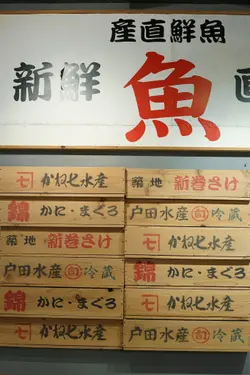 産直鮮魚
新鮮 魚 直
七 かね七水産
築地 新巻さけ
錦 かに・まぐろ
戸田水産 冷蔵
築地 新巻さけ
七 かね七水産
戸田水産 冷蔵
錦 かに・まぐろ
錦 かに・まぐろ
七 かね七水産
七 かね七水産
戸田水産 冷蔵